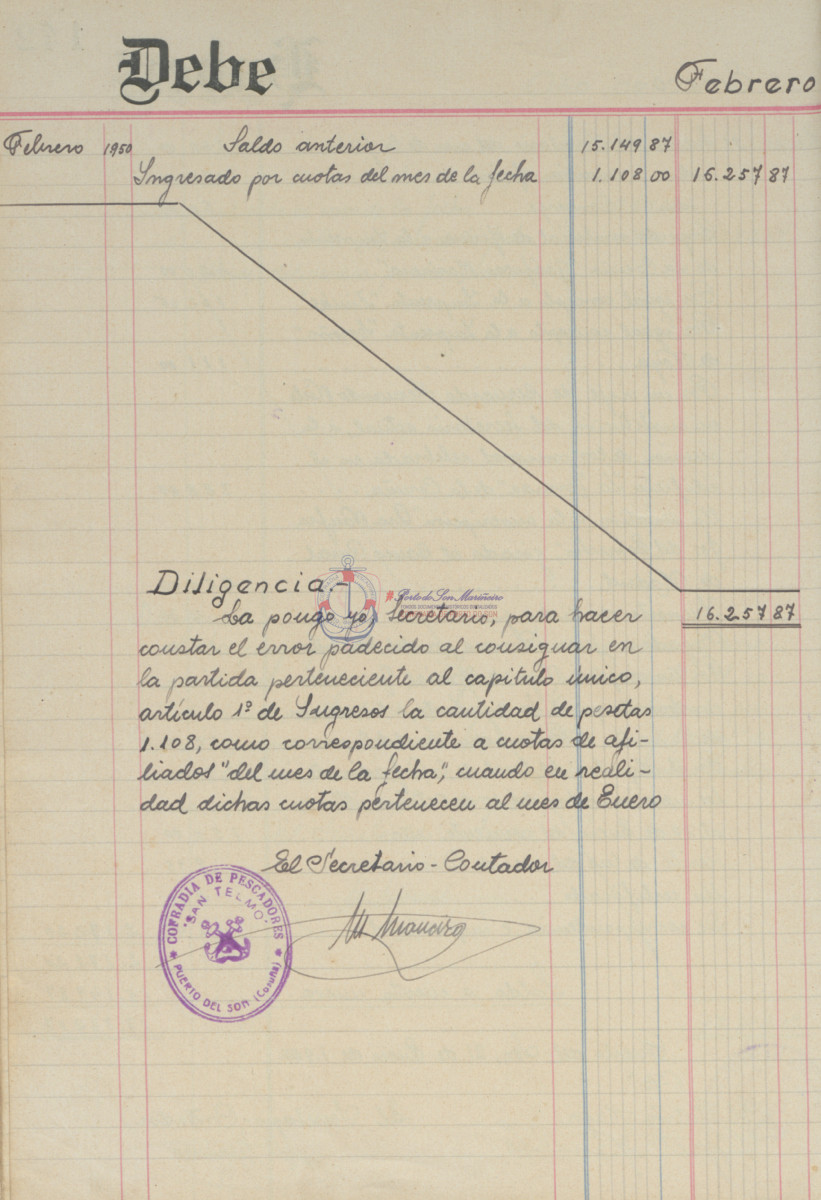 Debe
Febrero
Febrero 1950 Saldo anterior 15.149 87
Ingresado por cuotas del mes de la fecha 1.108 00 16.257 87
16.257 87
Diligencia.-
La pongo yo, Secretario, para hacer
constar el error padecido al consignar en
la partida perteneciente al capítulo único,
artículo 1º de Ingresos la cantidad de pesetas
1.108, como correspondiente a cuotas de afi-
liados "del mes de la fecha", cuando en reali-
dad dichas cuotas pertenecen al mes de Enero
El Secretario-Contador
COFRADIA DE PESCADORES
"SAN TELMO"
PUERTO DEL SON (Coruña)
Porto do Son Mariñeiro